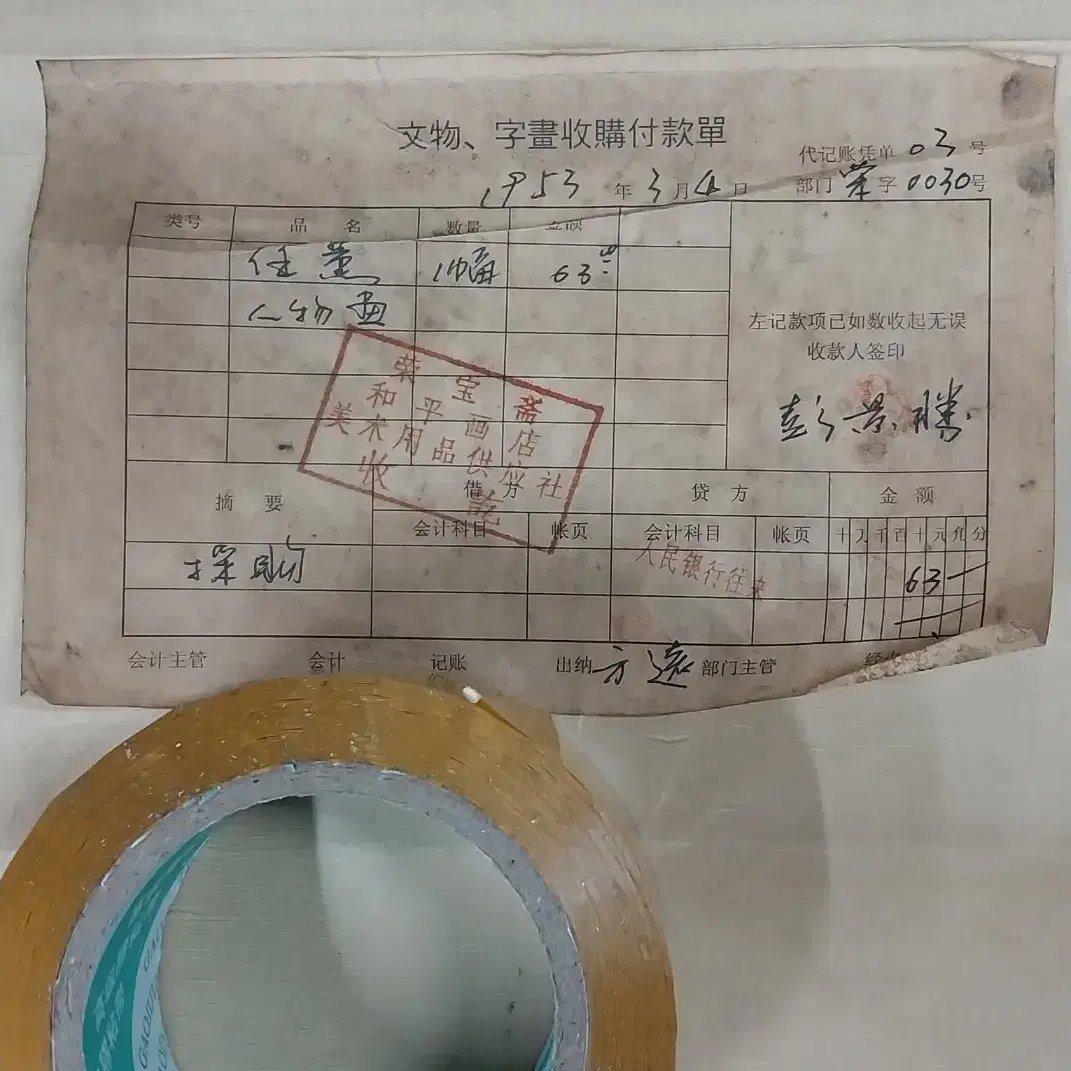 文物、字畫收購付款單
代记账凭单 03 号
1953 年 3 月 4 日 部门 荣 字 0030号
类号 品 名 数量 金额
任薰 1幅 63
人物画
左记款项已如数收起无误
收款人签印
彭景勝
荣 宝 斋
和 平 画 店
美 术 用 品 供 应 社
收 讫
摘 要 借 方 贷 方 金 额
会计科目 帐页 会计科目 帐页 十 万 千 百 十 元 角 分
採购 人民银行往来 63
会计主管 会计 记账 出纳 方远 部门主管
GAO
GAO